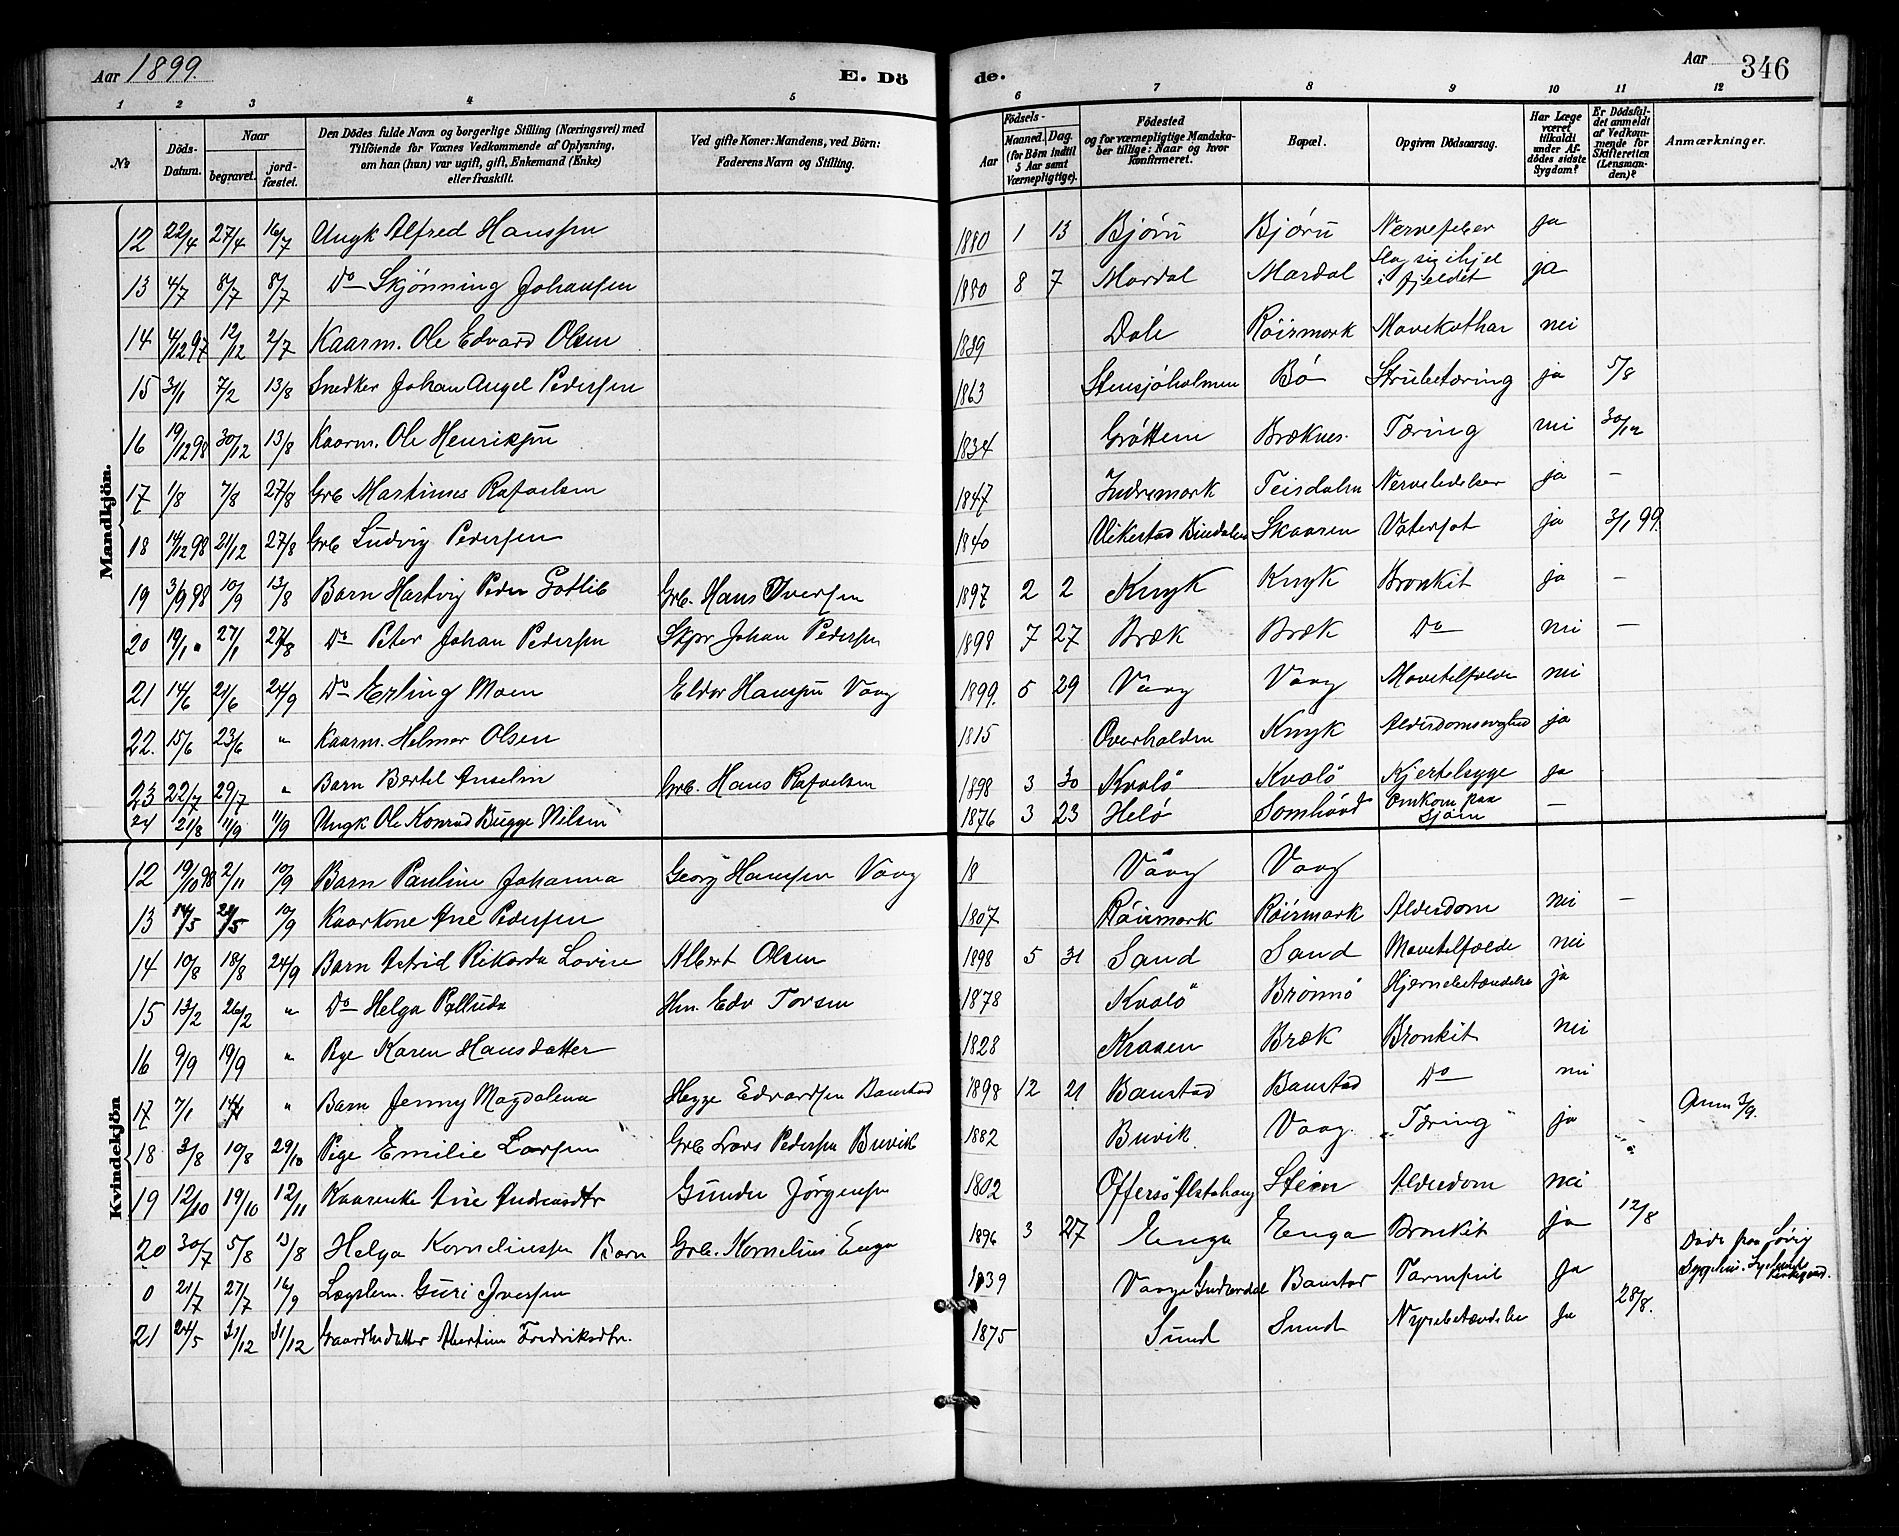 Aar 1899. E. Dö de. Aar 346
1 2 3 4 5 6 7 8 9 10 11 12
No Döds-Datum. Naar begravet. jord-fæstet. Den Dödes fulde Navn og borgerlige Stilling (Næringsvei) med Tilföiende for Voxnes Vedkommende af Oplysning, om han (hun) var ugift, gift, Enkemand (Enke) eller fraskilt. Ved gifte Koner: Mandens, ved Börn: Faderens Navn og Stilling. Födsels- Aar Maaned. Dag. (for Börn indtil 5 Aar samt Værnepligtige). Födested og for værnepligtige Mandskaber tillige: Naar og hvor konfirmeret. Bopæl. Opgiven Dödsaarsag. Har Læge været tilkaldt under Afdödes sidste Sygdom? Er Dödsfaldet anmeldt af Vedkommende for Skifteretten (Lensmanden)? Anmærkninger.
Mandkjön.
12 22/4 27/4 16/7 Ungk Alfred Hanssen 1880 1 13 Bjørn Bjørn Nervefeber ja
13 4/7 8/7 8/7 Do Skjønning Johansen 1880 8 7 Mardal Mardal Slog sig ihjel i fjeldet ja
14 4/12 97 12/12 2/7 Kaarm. Ole Edvard Olsen 1839 Dale Röirmark Mavekathar nei
15 31/1 7/2 13/8 Snedker Johan Angel Pedersen 1863 Stensjøholmen Bö Strubetæring ja 5/8
16 19/12 98 30/12 13/8 Kaarm. Ole Henriksen 1834 Gröttem Bræknes. Tæring nei 30/12
17 1/8 7/8 27/8 Grb Martinus Rafaelsen 1847 Indremark Teisdalen Nerveledelser ja —
18 14/12 98 21/12 27/8 Grb Ludvig Pedersen 1840 Vikestad Bindalen Skaaren Vatersot ja 3/1 99.
19 3/9 98 10/9 13/8 Barn Hartvig Peder Gotlib Grb. Hans Iversen 1897 2 2 Knyk Knyk Bronkit ja —
20 19/1 " 27/1 27/8 Do Peter Johan Pedersen Skpr Johan Pedersen 1898 7 27 Bræk Bræk Do nei —
21 14/6 21/6 24/9 Do Erling Moen Eldor Hansen Vaag 1899. 5 29 Vaag Vaag Mavetilfælde nei
22. 15/6 23/6 " Kaarm. Helmer Olsen 1815 Overhalden Knyk Alderdomssvaghed ja
23 22/7 29/7 " Barn Bertel Anselm Grb. Hans Rafaelsen 1898 3 30 Kvalö Kvalö Kjertelsyge ja
24 21/8 11/9 11/9 Ungk Ole Konrad Bugge Nilsen 1876 3 23 Helö Somhövd Omkom paa Sjøen —
Kvindekjön
12 19/10 98 2/11 10/9 Barn Pauline Johanna Georg Hansen Vaag 18 Vaag Vaag
13 14/5 21/5 10/9 Kaarkone Ane Pedersen 1807 Röirmark Röirmark Alderdom nei —
14 10/8 18/8 24/9 Barn Astrid Rikarda Lovise Albert Olsen 1898 5 31 Sand Sand Mavetilfælde nei
15 13/2 26/2 " Do Helga Palluda Hm. Edv Torsen 1878 Kvalö Brönnö Hjernebetændelse ja
16 9/9 19/9 " Pige Karen Hansdatter 1828 Kraaen Bræk Bronkit nei
17 7/1 14/1 " Barn Jenny Magdalena Hegge Edvardsen Baustad 1898 12 21 Baustad Baustad Do nei Anm 3/9.
18 3/8 10/8 29/10 Pige Emilie Larsen Grb Lars Pedersen Buvik 1882 Buvik. Vaag. "Tæring" ja
19 12/10 19/10 12/11 Kaarenke Ane Andreasdtr Gunder Jörgensen 1802 Offersö Alstahaug Stein Alderdom nei
20 30/7 5/8 13/8 Helga Korneliussen Barn Grb. Kornelius Enga 1896 3 27 Enga Enga Bronkit ja 12/8
0 21/7 27/7 16/9 Lægslem. Guri Iversen 1839 Vaage Gudbrdal Baustad Tarmfeil Ja Döde paa Søvig Sygehus.
21 24/5 31/12 31/12 Gaardbrdatter Albertine Fredriksdtr. 1875 Sund Sund Nyrebetændelse Ja 28/8.